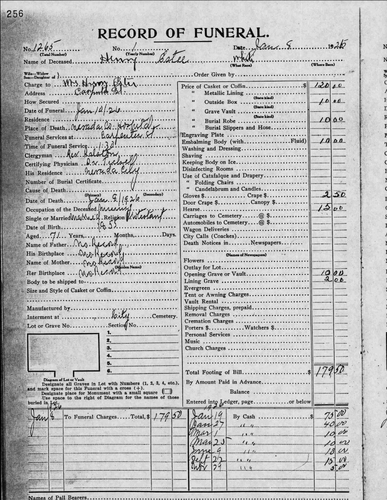 256
RECORD OF FUNERAL.
No. 1265 No. 1 Date Jan. 8 1926
(Total Number) (Yearly Number)
Name of Deceased Henry Estee White
(What Race) (Where Born)
Charge to Mrs Henry Estee
Address
How Secured
Date of Funeral Jan/10/26
Residence
Place of Death Nevada Co. Hospital
Funeral Services at
Time of Funeral Service 1:30
Clergyman Rev.
Certifying Physician Dr.
His Residence Nevada City
Number of Burial Certificate
Cause of Death
Date of Death Jan 8/1926
Occupation of the Deceased
Single or Married Married Religion Protestant
Date of Birth
Aged 71 Years, Months, Days.
Name of Father No Record
His Birthplace No Record
Name of Mother No Record
Her Birthplace No Record
Body to be shipped to
Size and Style of Casket or Coffin
Manufactured by
Interment at City Cemetery.
Lot or Grave No. Section No.
Diagram of Lot or Vault
Designate all Graves in Lot with Numbers (1, 2, 3, 4, etc.), and mark space for this Funeral with a cross (+).
Designate place for Monument with a small square
Use space to the right of Diagram for the names of those buried in Lot.
Order Given by
Price of Casket or Coffin $ 120.00
" Metallic Lining
" Outside Box 10.00
" Grave Vault
" Burial Robe 10.00
" Burial Slippers and Hose
Engraving Plate
Embalming Body (with Fluid) 10.00
Washing and Dressing
Shaving
Keeping Body on Ice
Disinfecting Rooms
Use of Catafalque and Drapery
" Folding Chairs
" Candelabrum and Candles
Gloves $ Crape $ 2.50
Door Crape $ Canopy $
Hearse 15.00
Carriages to Cemetery @ $
Automobiles to Cemetery @ $
Wagon Deliveries
City Calls (Coaches)
Death Notices in Newspapers.
(Names of Newspapers)
Flowers
Outlay for Lot
Opening Grave or Vault 10.00
Lining Grave 2.00
Evergreen
Tent or Awning Charges
Vault Rental
Shipping Charges, prepaid
Removal Charges
Cremation Charges
Porters $ Watchers $
Personal Services
Music
Church Charges
Total Footing of Bill $ 179.50
By Amount Paid in Advance
Balance
Entered into Ledger, page or below
1926
Jan 8 To Funeral Charges. Total, $ 179 50
1926
Jan 19 By Cash $ 75.00
Jan 27 " " 40.00
Mar 1 " " 10.00
Mar 25 " " 10.00
June 9 " " 10.00
" " 15.00
Nov 29 " "
Names of Pall Bearers.